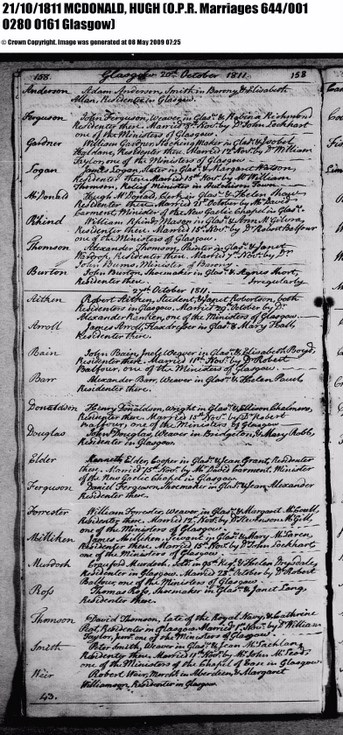 21/10/1811 MCDONALD, HUGH (O.P.R. Marriages 644/001
0280 0161 Glasgow)
© Crown Copyright. Image was generated at 08 May 2009 07:25
158. Glasgow 20th October 1811. 158
Anderson Adam Anderson, Smith in Barony & Elizabeth
Allan, Residenter in Glasgow.
Ferguson John Ferguson, Weaver in Glasw. & Robina Richmond
Residenter there. Married Novr. by Dr. John Lockhart
one of the Ministers of Glasgow.
Gardner William Gardner, Stocking Maker in Glasw. & Isobel
Residenter there. Married by Dr. William
Taylor, one of the Ministers of Glasgow.
Logan James Logan, Slater in Glasw. & Margaret Watson,
Residenter there. Married Novr. by Mr. William
Thomson, Relief Minister in Hutcheson Town.
McDonald Hugh McDonald, Clerk in Glasw. & Helen
Residenter there. Married 21st October by Mr. David
Garment, Minister of the New Gaelic Chapel in Glasw.
Rhind William Rhind, Mason in Glasw. &
Residenter there. Married 15th Novr. by Dr. Robert Balfour
one of the Ministers of Glasgow.
Thomson Alexander Thomson, Painter in Glasw. & Janet
Residenter there. Married Novr. by Dr.
John Burns, Minister of Barony.
Burton John Burton, Shoemaker in Glasw. & Agnes Short,
Residenter there. Irregularly
27th October 1811.
Aitken Robert Aitken, Student, & Janet Robertson, both
Residenters in Glasgow. Married 29th October by Dr.
Alexander Rankin, one of the Ministers of Glasgow.
Arroll James Arroll, Flaxdresser in Glasw. & Mary Hall,
Residenter there.
Bain John Bain, Weaver in Glasw. & Elisabeth Boyd,
Residenter there. Married Novr. by Dr. Robert
Balfour, one of the Ministers of Glasgow.
Barr Alexander Barr, Weaver in Glasw. & Helen
Residenter there.
Donaldson Henry Donaldson, Wright in Glasw. & Lillias Chalmers,
Residenter there. Married 15th Novr. by Dr. Robert
Balfour, one of the Ministers of Glasgow
Douglas John Douglas, Weaver in Bridgeton, & Mary Robb,
Residenter in Glasgow.
Elder Kenneth Elder, Cooper in Glasw. & Jean Grant, Residenter
there. Married 15th Novr. by Mr. David Garment, Minister
of the New Gaelic Chapel in Glasgow.
Ferguson Daniel Ferguson, Shoemaker in Glasw. & Jean Alexander
Residenter there.
Forrester William Forrester, Weaver in Glasw. & Margaret
Residenter there. Married Novr. by
one of the Ministers of Glasgow.
McMicken James McMicken, Servant in Glasw. & Mary McLaren,
Residenter there. Married 15th Novr. by Dr. John Lockhart
one of the Ministers of Glasgow.
Murdoch Craufurd Murdoch, in 71st Regt. & Helen Drysdale
Residenter in Glasgow. Married October by Dr. Robert
Balfour one of the Ministers of Glasgow.
Ross Thomas Ross, Shoemaker in Glasw. & Janet Lang,
Residenter there.
Thomson David Thomson, late of the Royal Navy, & Catherine
Residenter in Glasgow. Married Novr. by Dr. William
Taylor, Junr. one of the Ministers of Glasgow.
Smith Peter Smith, Weaver in Glasw. & Jean McLachlan,
Residenter there. Married 11th Novr. by Mr. John McLeod
one of the Ministers of the Chapel of Ease in Glasgow.
Weir Robert Weir, Mercht. in Aberdeen, & Margaret
Williamson, Residenter in Glasgow.
43.